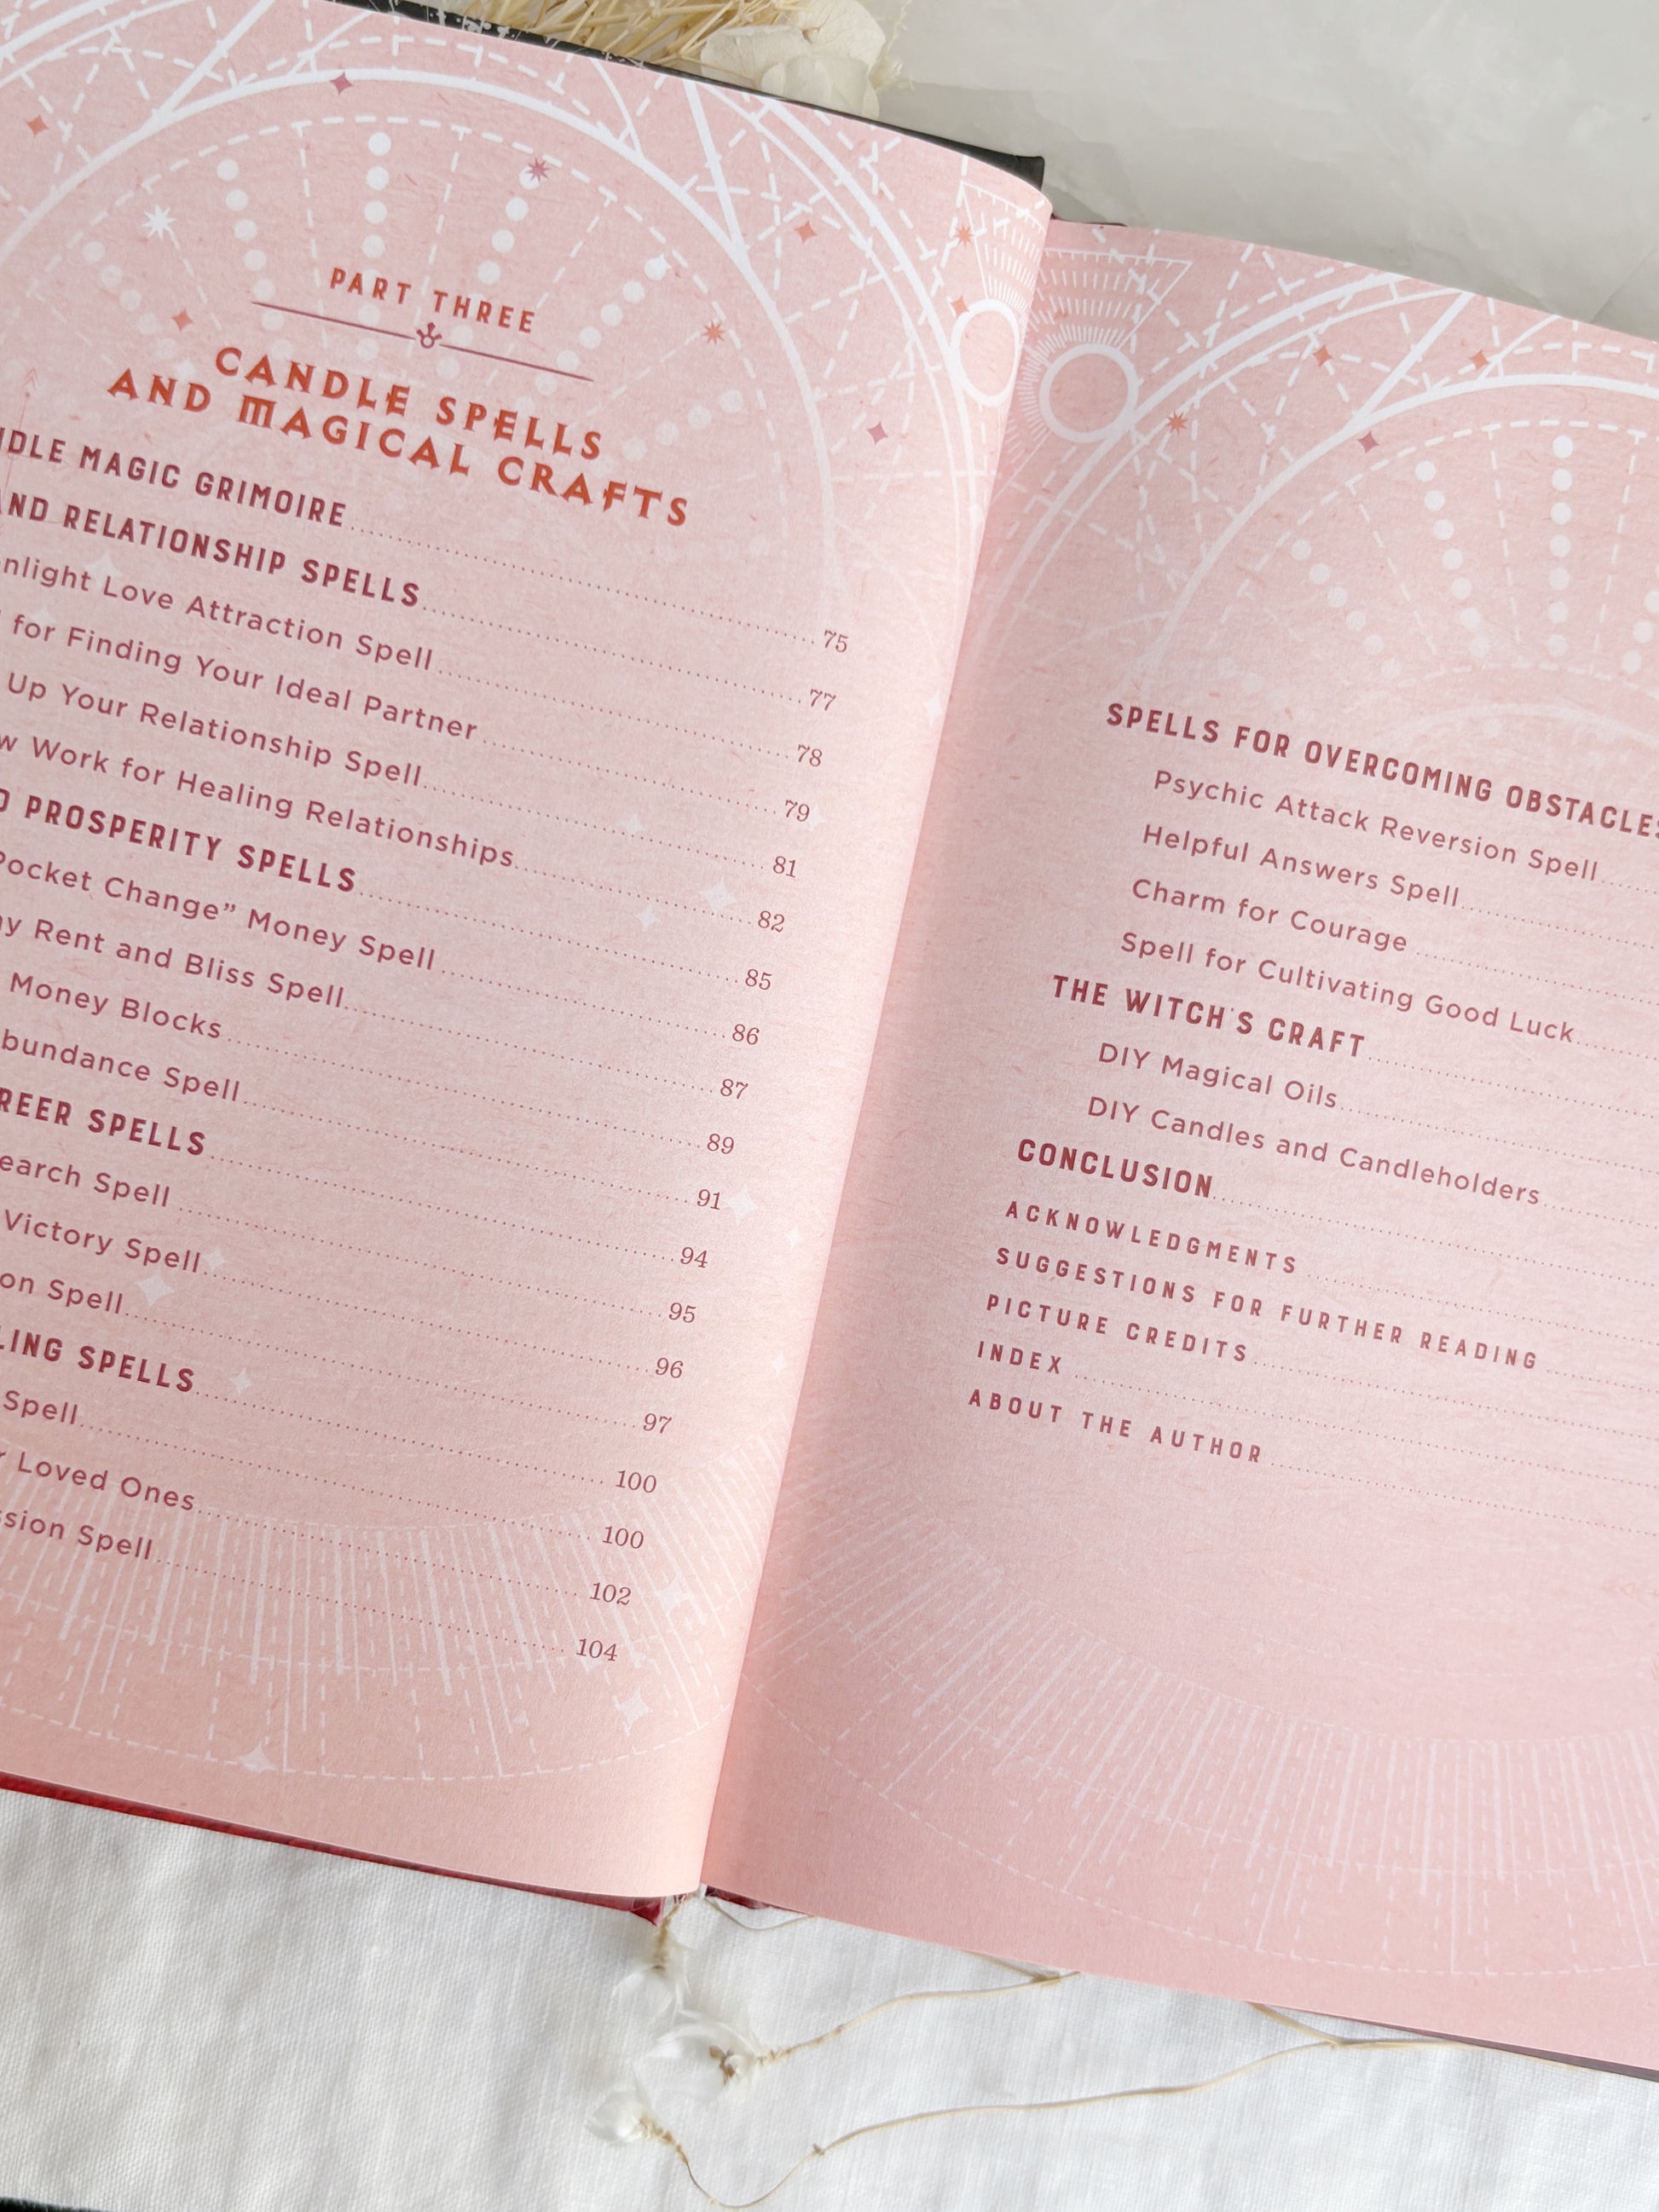 PART THREE
CANDLE SPELLS
AND MAGICAL CRAFTS
NDLE MAGIC GRIMOIRE 75
AND RELATIONSHIP SPELLS 77
nlight Love Attraction Spell 78
for Finding Your Ideal Partner 79
Up Your Relationship Spell 81
w Work for Healing Relationships 82
D PROSPERITY SPELLS 85
Pocket Change” Money Spell 86
ay Rent and Bliss Spell 87
Money Blocks 89
bundance Spell 91
REER SPELLS 94
earch Spell 95
Victory Spell 96
on Spell 97
LING SPELLS 100
Spell 100
r Loved Ones 102
ssion Spell 104
SPELLS FOR OVERCOMING OBSTACLES
Psychic Attack Reversion Spell
Helpful Answers Spell
Charm for Courage
Spell for Cultivating Good Luck
THE WITCH'S CRAFT
DIY Magical Oils
DIY Candles and Candleholders
CONCLUSION
ACKNOWLEDGMENTS
SUGGESTIONS FOR FURTHER READING
PICTURE CREDITS
INDEX
ABOUT THE AUTHOR